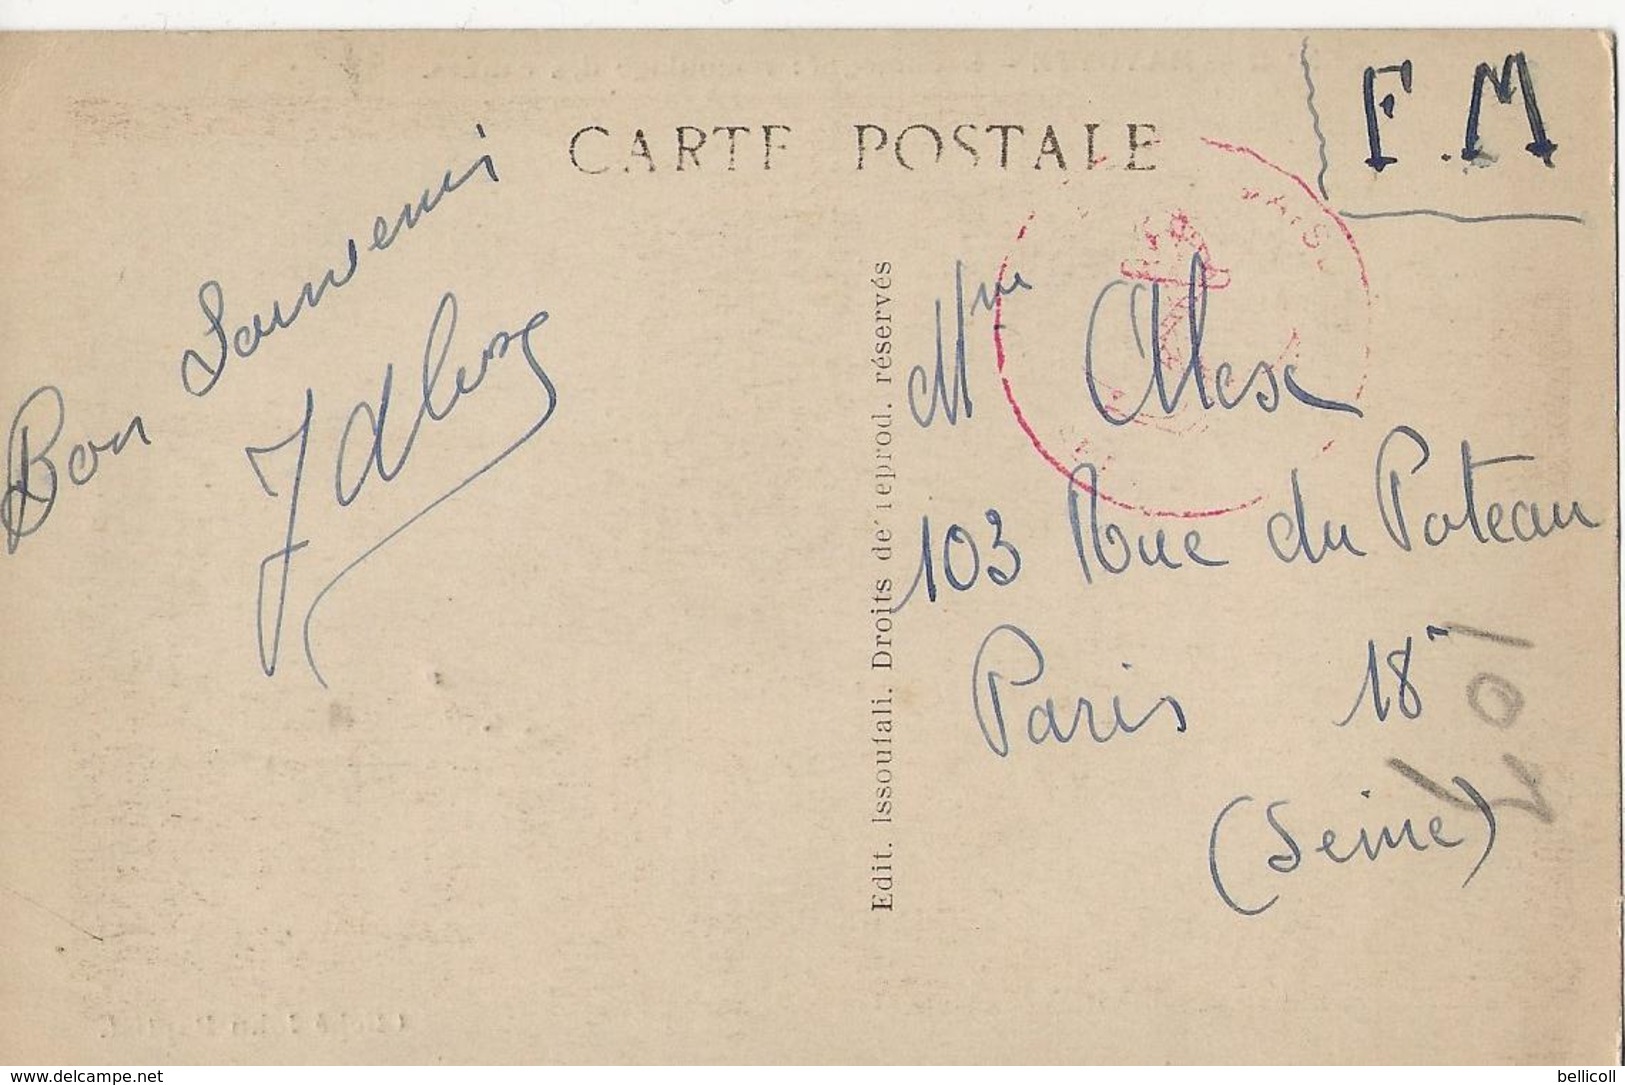 CARTE POSTALE
F.M
Bon Souvenir
Edit. Issoufali. Droits de reprod. réservés
Mme Alex
103 Rue du Poteau
Paris 18
(Seine)
www.delcampe.net
bellicoll